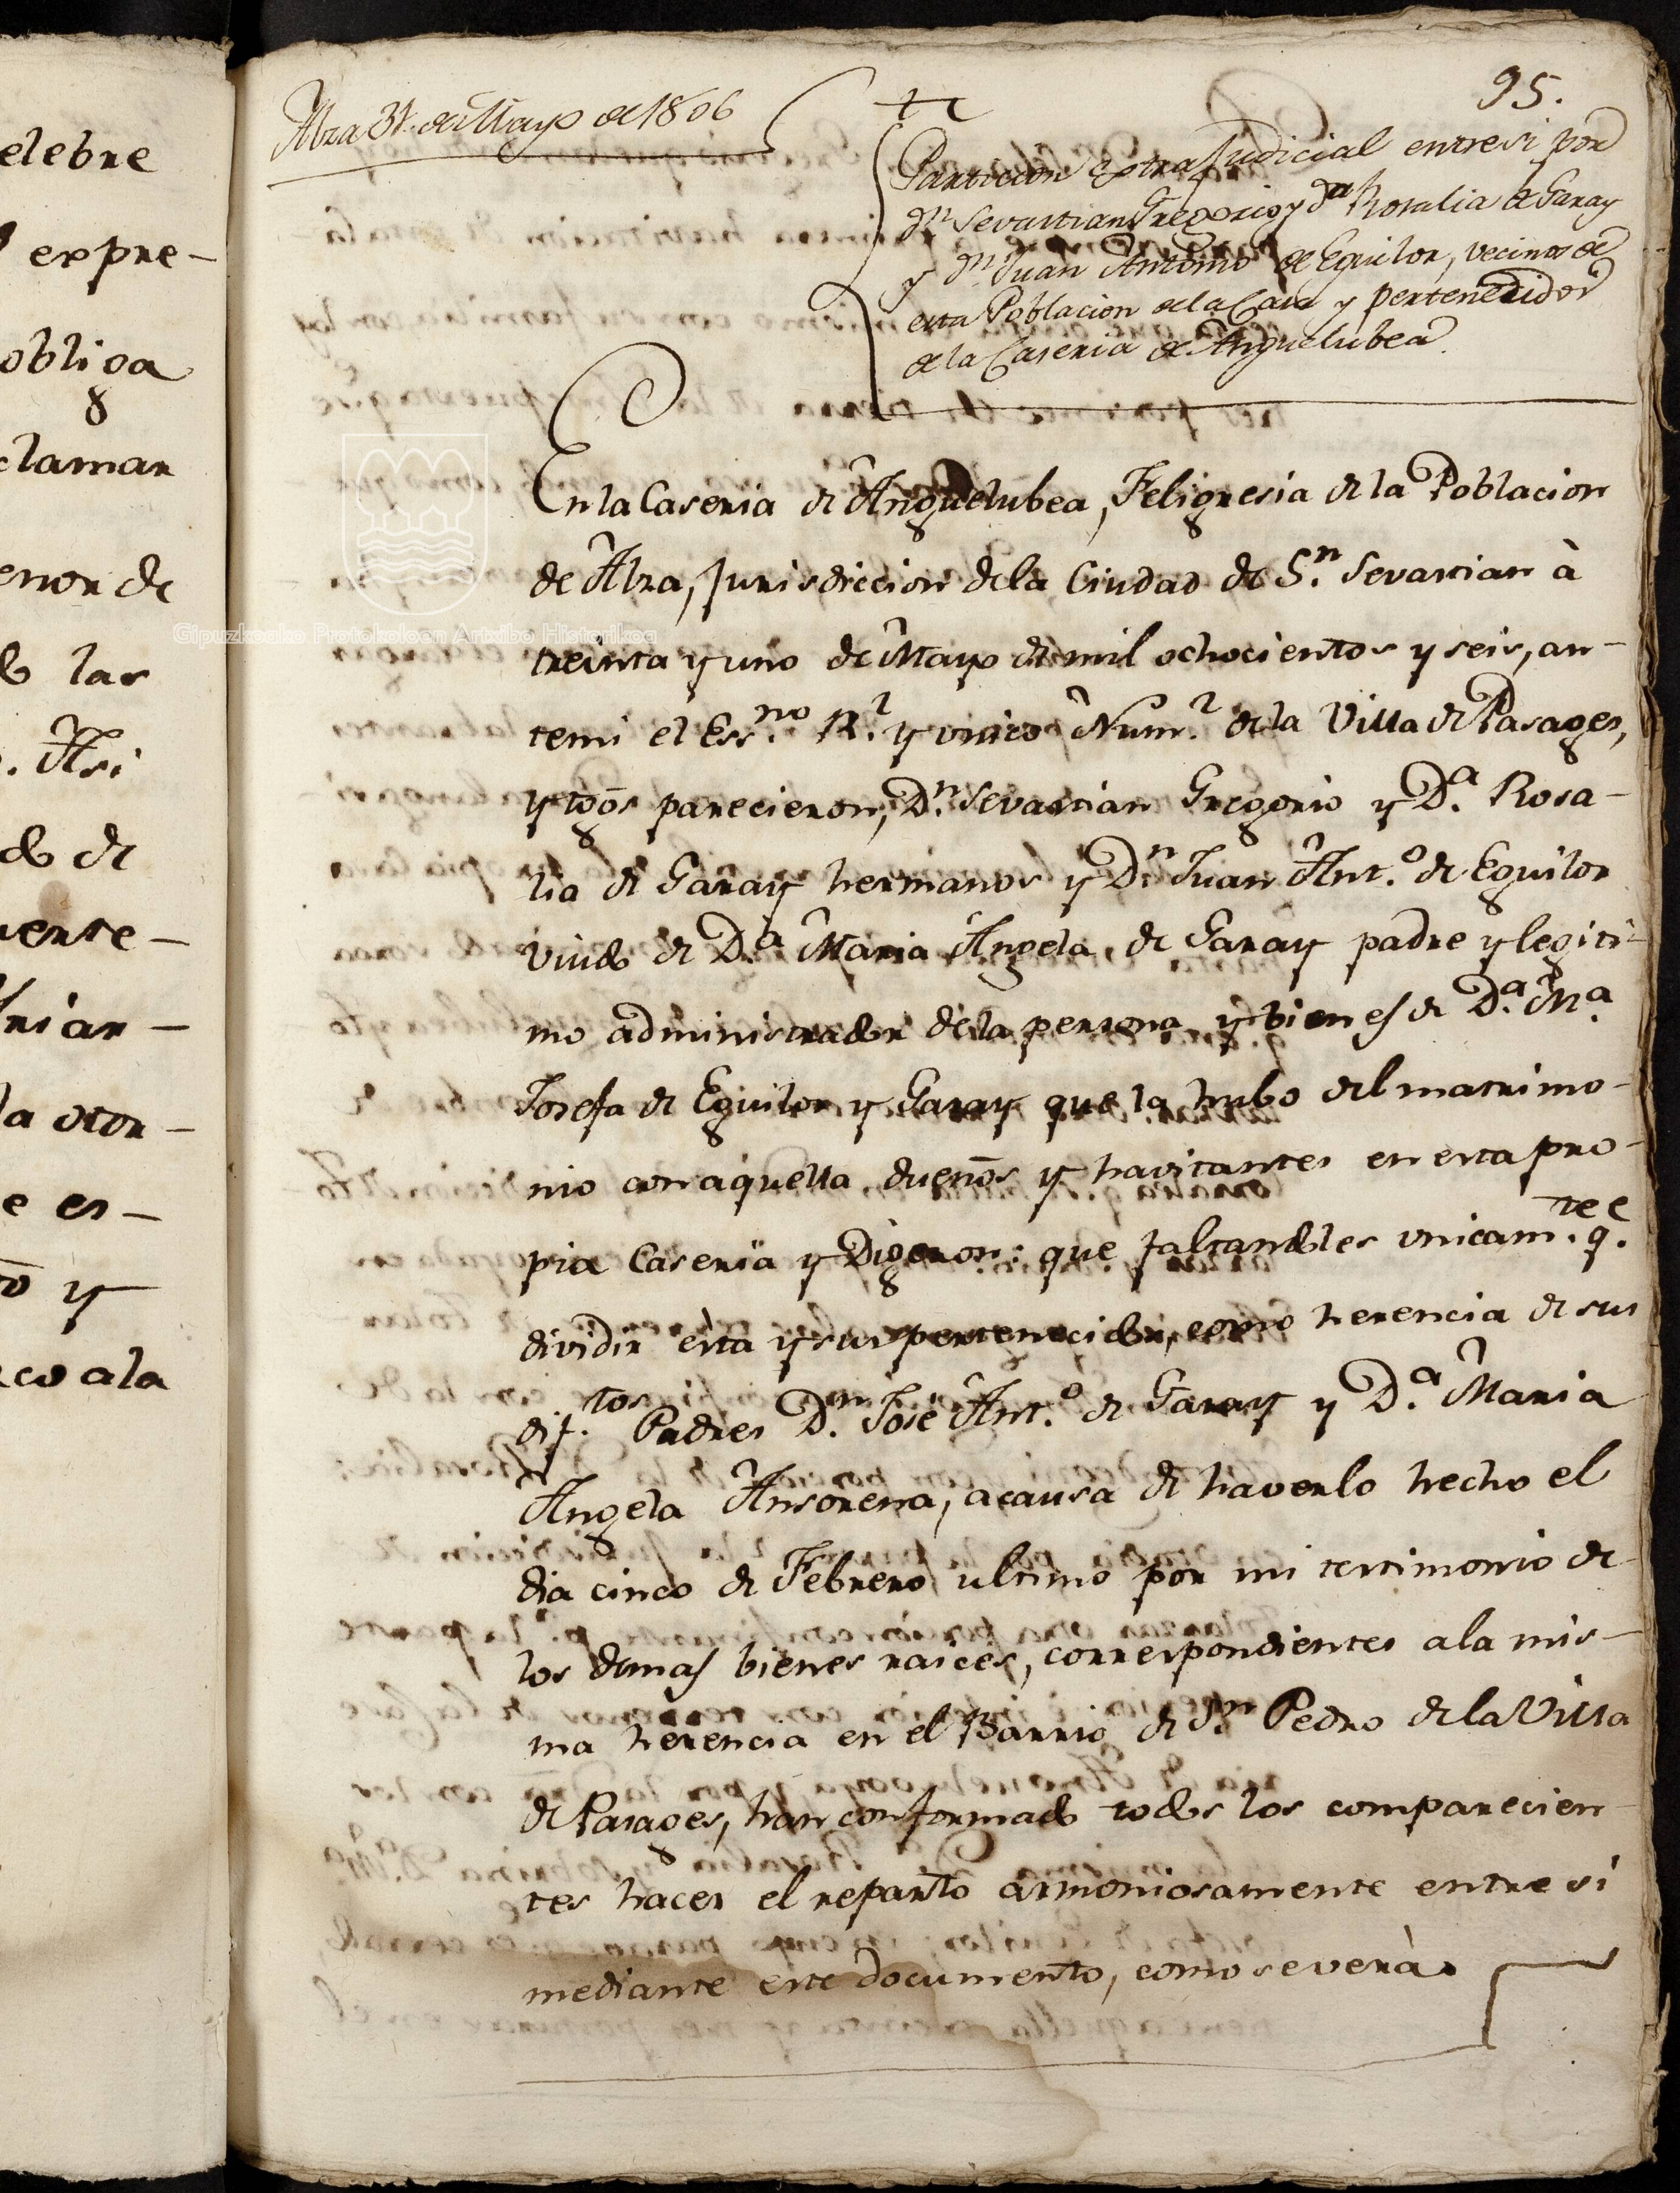 elebre
expre-
obliga
clamar
enor de
las
Asi
do de
mente-
rian-
la otor-
e es-
y
co ala
Alza 31. de Mayo de 1806
95.
Particion extraJudicial entresi por
Dn. Sevastian Gregorio y Da. Rosalia de Garay
y Dn. Juan Antonio de Eguilor, vecinos de
esta Poblacion dela Casa y pertenecidos
de la Caseria de Anguelubea.
En la Caseria de Anguelubea, Feligresia de la Poblacion
de Alza, Jurisdiccion dela Ciudad de Sn. Sevastian à
treinta y uno de Mayo de mil ochocientos y seis, an-
temi el Essno. Rl. y unico Numl. de la Villa de Pasages,
y tgōs parecieron, Dn. Sevastian Gregorio y Da. Rosa-
lia de Garay hermanos y Dn. Juan Anto. de Eguilor
viudo de Da. Maria Angela de Garay padre y legiti-
mo administrador dela persona y bienes de Da. Ma.
Josefa de Eguilor y Garay que la hubo del matrimo-
nio con aquella, dueños y havitantes en esta pro-
pia Caseria y Digeron: que faltandoles unicamte. qe.
dividir èsta y sus pertenecidos, como herencia de sus
diftos. Padres Dn. José Anto. de Garay y Da. Maria
Angela Ansorena, acausa de haverlo hecho el
dia cinco de Febrero ultimo por mi testimonio de
los demas bienes raices, correspondientes ala mis-
ma herencia en el Barrio de Sn. Pedro de la Villa
de Pasages, han conformado todos los comparecien-
tes hacer el reparto armoniosamente entre sí
mediante este documento, como se verà.
Gipuzkoako Protokoloen Artxibo Historikoa